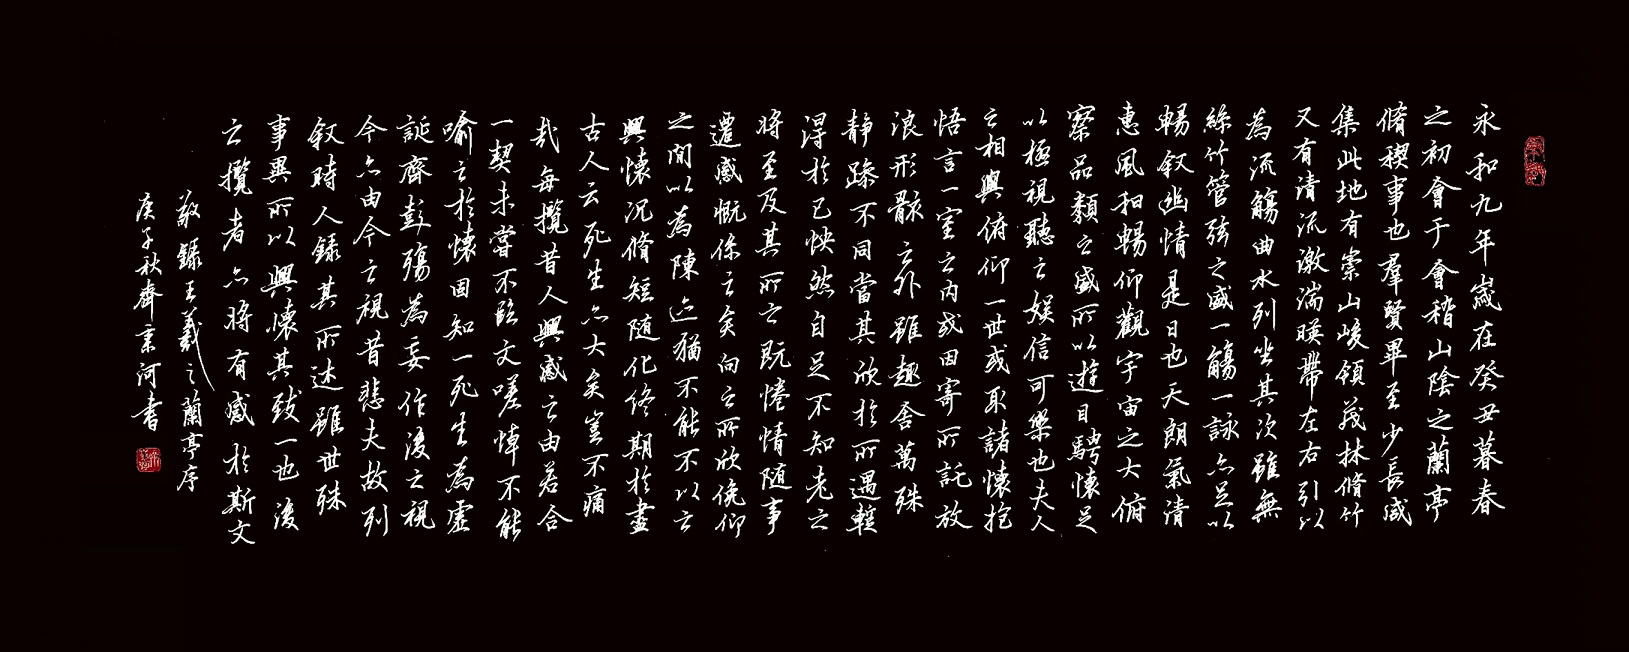 永和九年歲在癸丑暮春
之初會于會稽山陰之蘭亭
脩稧事也羣賢畢至少長咸
集此地有崇山峻領茂林脩竹
又有清流激湍暎帶左右引以
為流觴曲水列坐其次雖無
絲竹管弦之盛一觴一詠亦足以
暢叙幽情是日也天朗氣清
惠風和暢仰觀宇宙之大俯
察品類之盛所以遊目騁懷足
以極視聽之娛信可樂也夫人
之相與俯仰一世或取諸懷抱
悟言一室之內或因寄所託放
浪形骸之外雖趣舍萬殊
靜躁不同當其欣於所遇暫
得於己怏然自足不知老之
將至及其所之既惓情隨事
遷感慨係之矣向之所欣俛仰
之間以為陳迹猶不能不以之
興懷況脩短隨化終期於盡
古人云死生亦大矣豈不痛
哉每攬昔人興感之由若合
一契未嘗不臨文嗟悼不能
喻之於懷固知一死生為虛
誕齊彭殤為妄作後之視
今亦由今之視昔悲夫故列
叙時人錄其所述雖世殊
事異所以興懷其致一也後
之攬者亦將有感於斯文
敬錄王羲之蘭亭序
庚子秋齊景河書